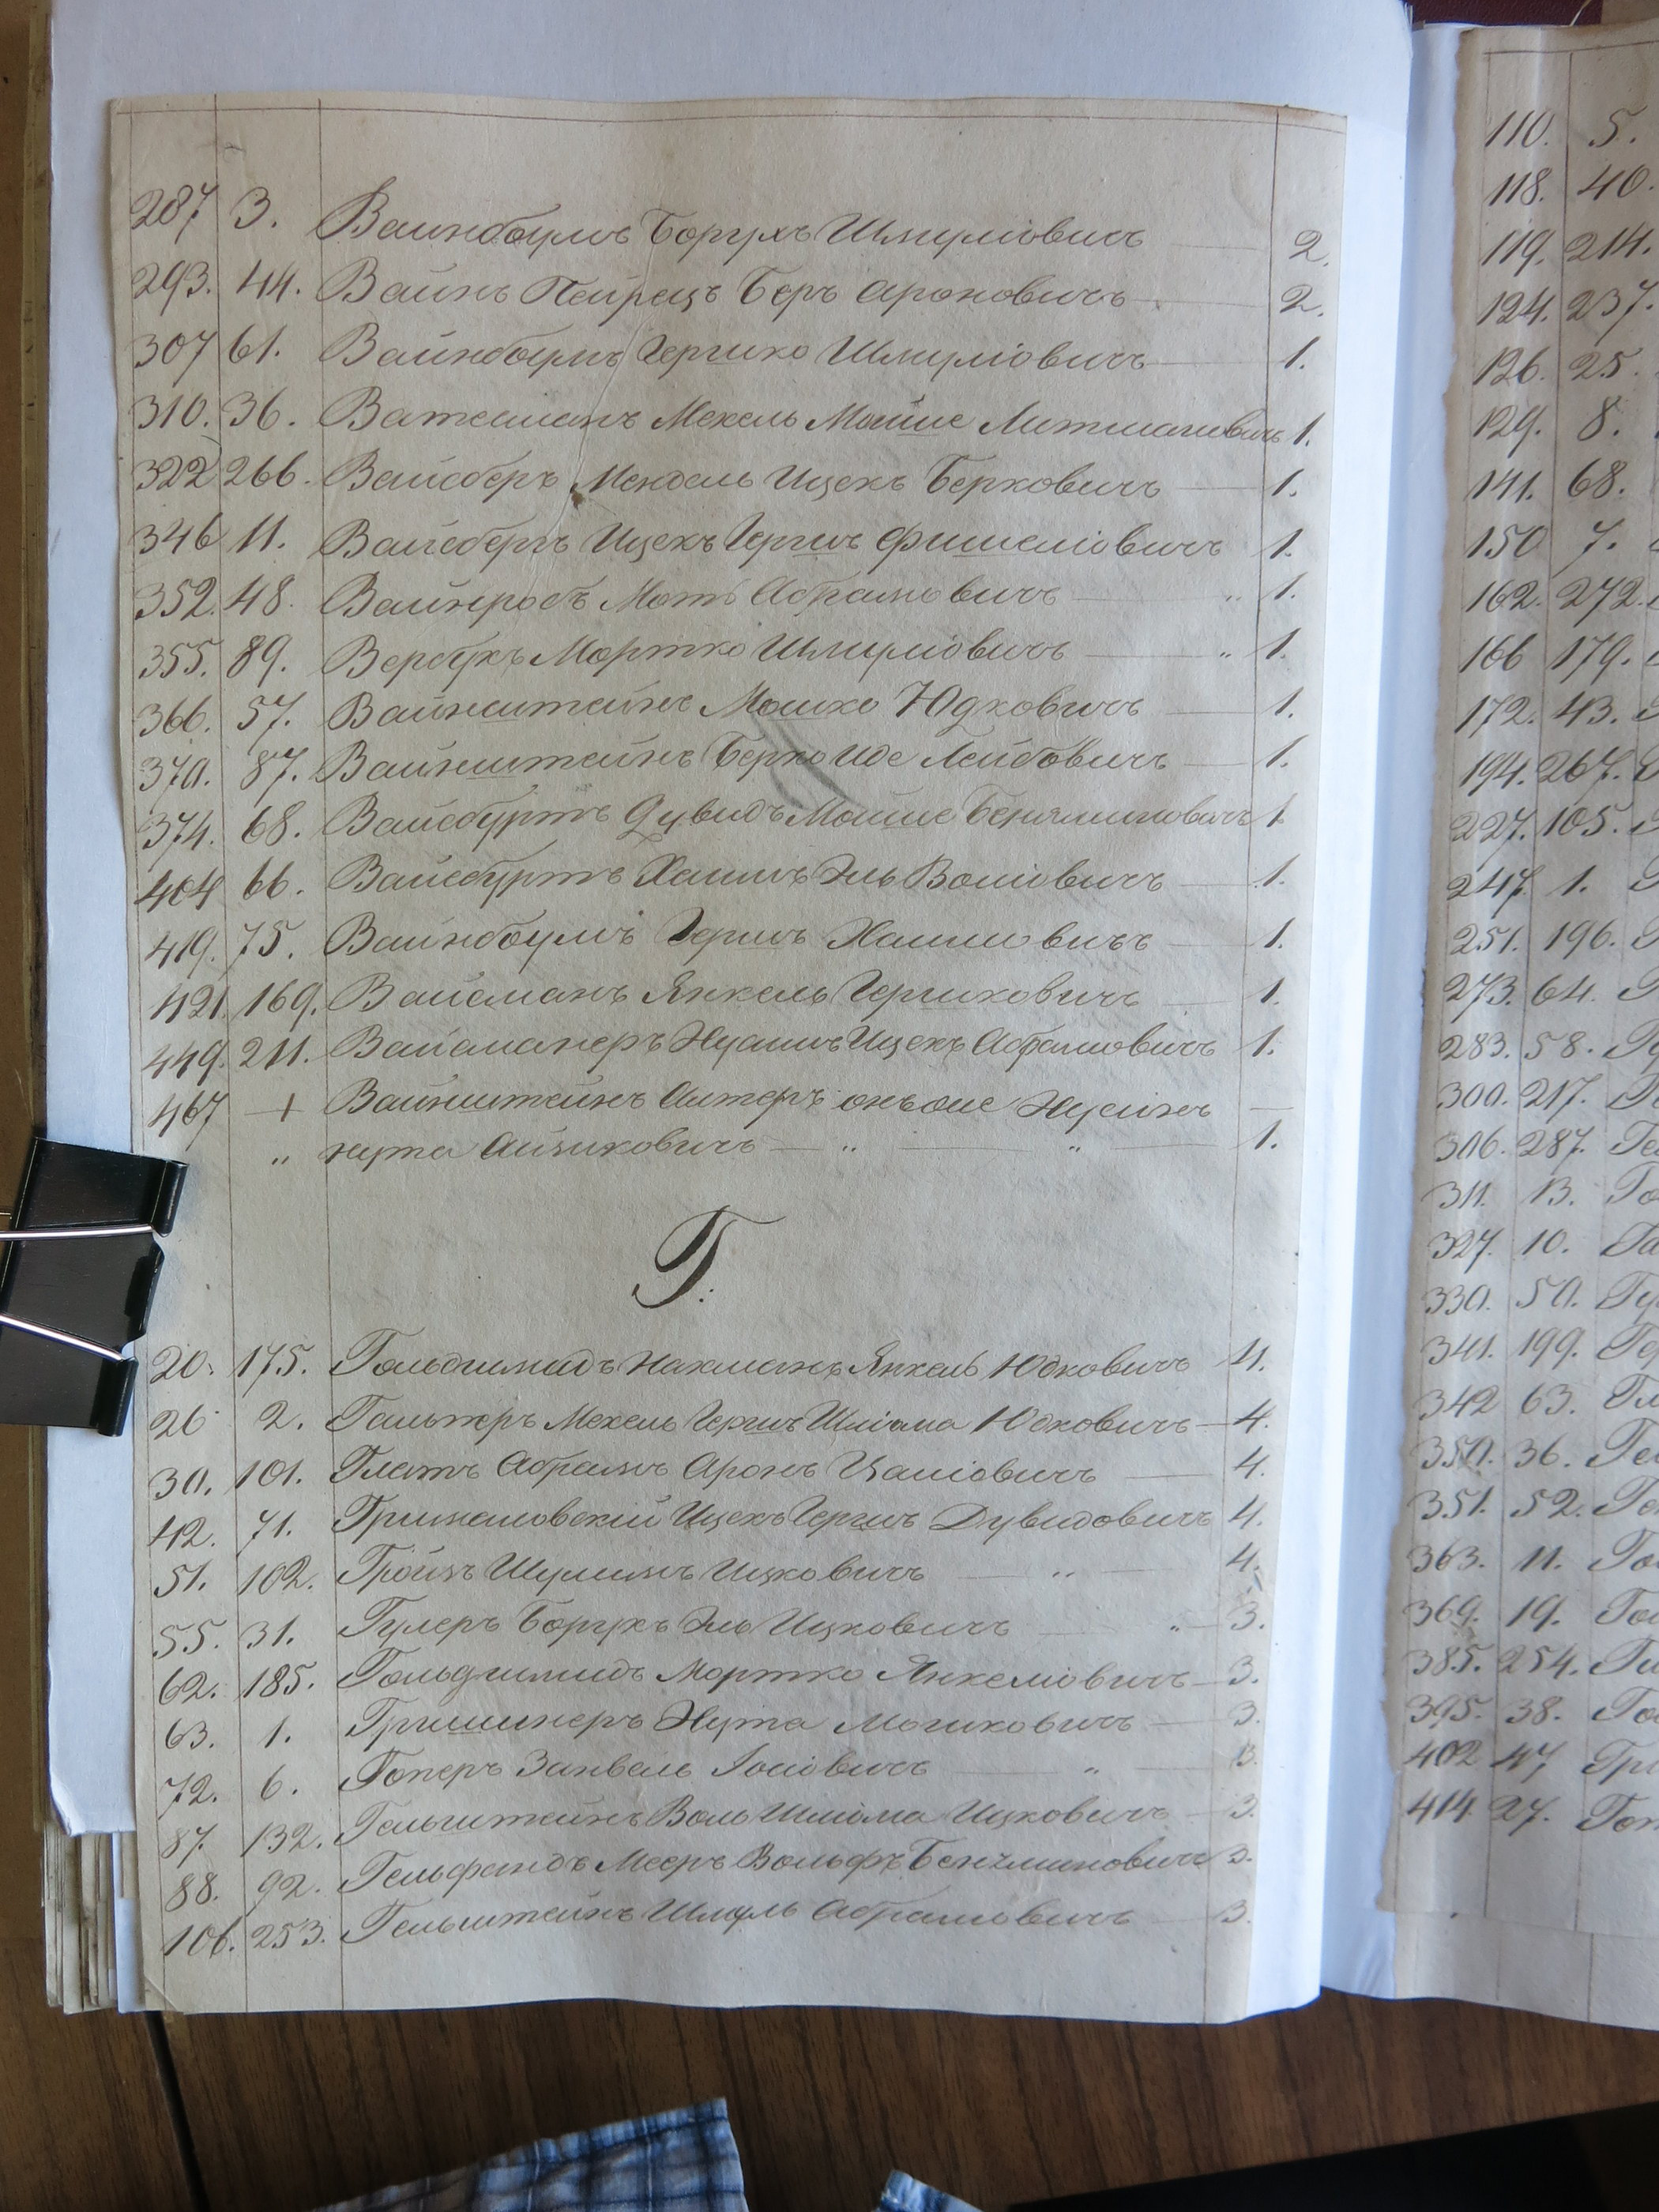 287 3. Вайнбаумъ Борухъ Шмуліовичъ 2.
293. 44. Вайнъ Пейрецъ Беръ Ароновичъ 2.
307 61. Вайнбаумъ Гершко Шмуліовичъ 1.
310. 36. Ватманъ Мехель Мойше Литмановичъ 1.
322 266. Вайсберъ Мендель Ицекъ Берковичъ 1.
346 11. Вайсбергъ Ицекъ Гершъ Фишеліовичъ 1.
352. 48. Вайнробъ Мот Абрамовичъ „ 1.
355. 89. Вербукъ Мортко Шмуліовичъ „ 1.
366. 57. Вайнштейнъ Мошко Юдковичъ 1.
370. 87. Вайнштейнъ Берко Иде Лейбовичъ 1.
374. 68. Вайсбуртъ Дувидъ Мойше Беняминовичъ 1.
404 66. Вайсбуртъ Хаимъ Эль Воліовичъ 1.
419. 75. Вайнбаумъ Гершъ Хаимовичъ 1.
421. 169. Вайсманъ Янкель Гершковичъ 1.
449. 211. Нухимъ Ицекъ Абрамовичъ 1.
467 + Вайнштейнъ Алтеръ онъ оне Нусинъ
„ нута Айзиковичъ „ „ 1.
Г.
20. 175. Гольдшмидъ Нахманъ Янкель Юдковичъ 4.
26 2. Гальперъ Мехель Гершъ Шліома Юдковичъ 4.
30. 101. Глатъ Абрамъ Аронъ Цаліовичъ 4.
42. 71. Ицекъ Гершъ Дувидовичъ 4.
51. 102. Гройзъ Шулимъ Ицковичъ „ 4.
55. 31. Гулеръ Борухъ Эль Ицковичъ „ 3.
62. 185. Гольдшмидъ Мортко Янкеліовичъ 3.
63. 1. Гришинеръ Нута Мошковичъ 3.
72. 6. Гоперъ Занвель Іосіовичъ „ 3.
87. 132. Гельштейнъ Воль Шліома Ицковичъ 3.
88. 92. Гельфандъ Мееръ Вольфъ Беняминовичъ 3.
106. 253. Гельштейнъ Абрамовичъ 3.
110. 5.
118. 40.
119. 214.
124. 237.
126. 25.
129. 8.
141. 68.
150 7.
162. 272.
166 179.
172. 43.
194. 267.
227. 105.
247. 1.
251. 196.
273. 64.
283. 58.
300. 217.
306. 287.
311. 13.
327. 10.
330. 50.
341. 199.
342 63.
350. 36.
351. 52.
363. 11.
369. 19.
385. 254.
395. 38.
402 47
414. 27.